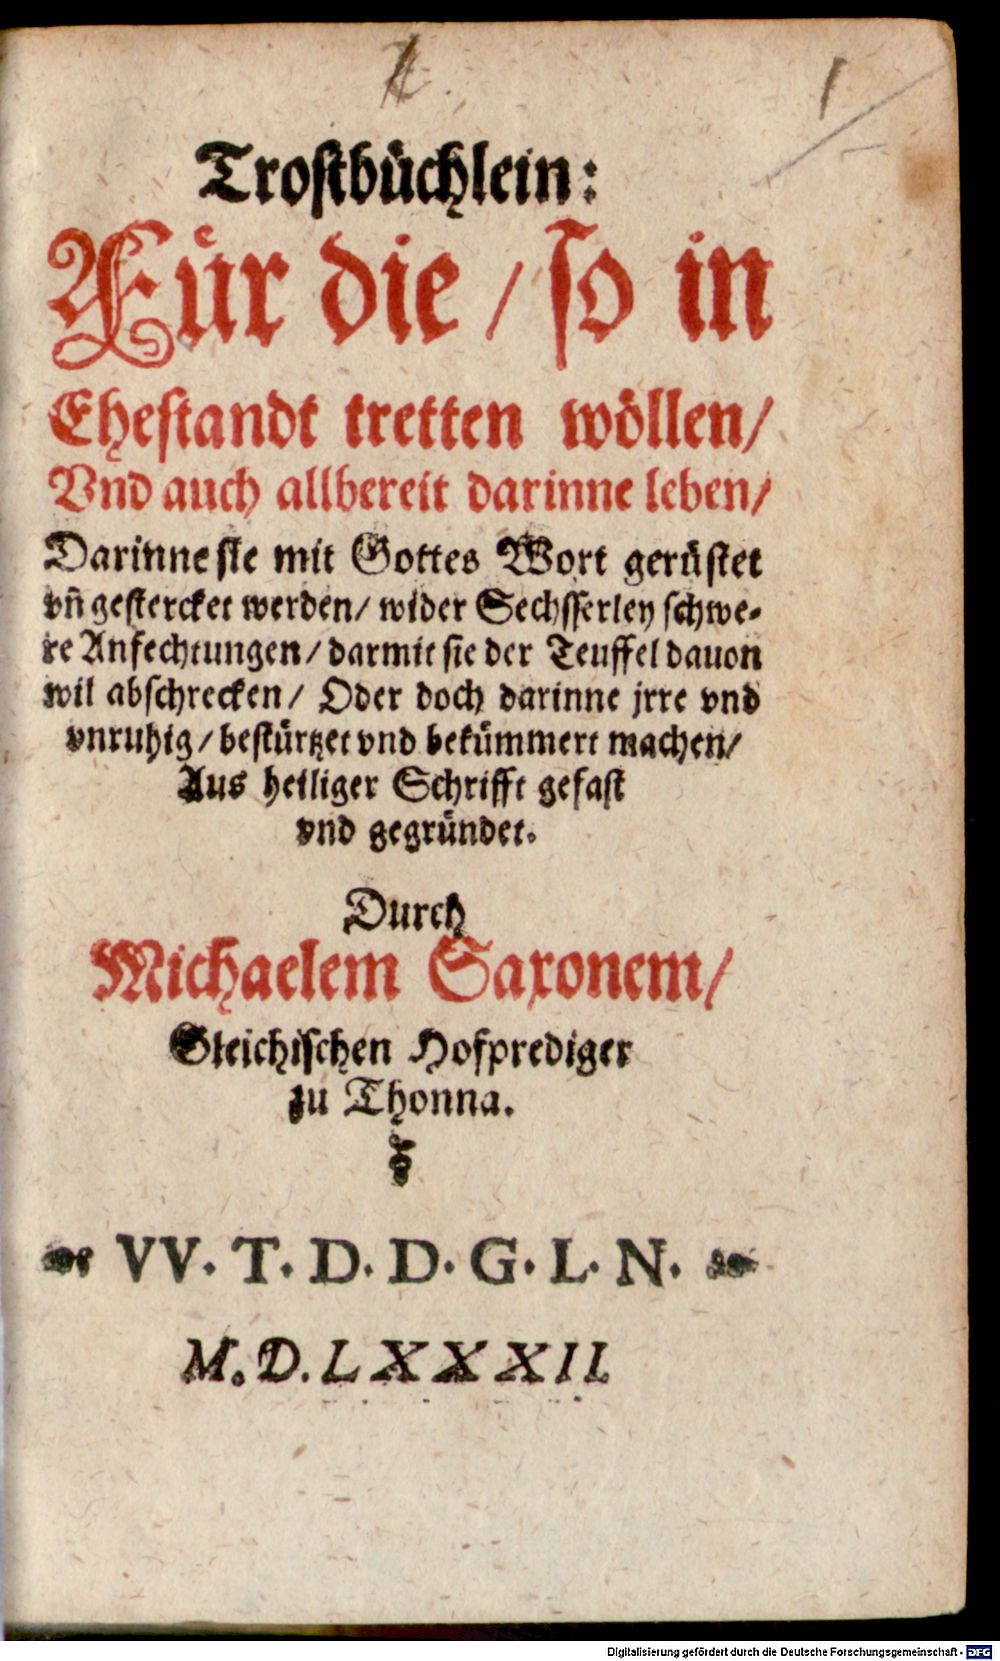 1
Trostbüchlein:
Für die / so in
Ehestandt tretten wöllen/
Vnd auch allbereit darinne leben/
Darinne sie mit Gottes Wort gerüstet
vñ gestercket werden/ wider Sechsserley schwe-
re Anfechtungen/ darmit sie der Teuffel dauon
wil abschrecken/ Oder doch darinne jrre vnd
vnruhig/ bestürtzet vnd bekümmert machen/
Aus heiliger Schrifft gefast
vnd gegründet.
Durch
Michaelem Saxonem/
Gleichischen Hofprediger
zu Thonna.
VV. T. D. D. G. L. N.
M. D. LXXXII.
Digitalisierung gefördert durch die Deutsche Forschungsgemeinschaft - DFG